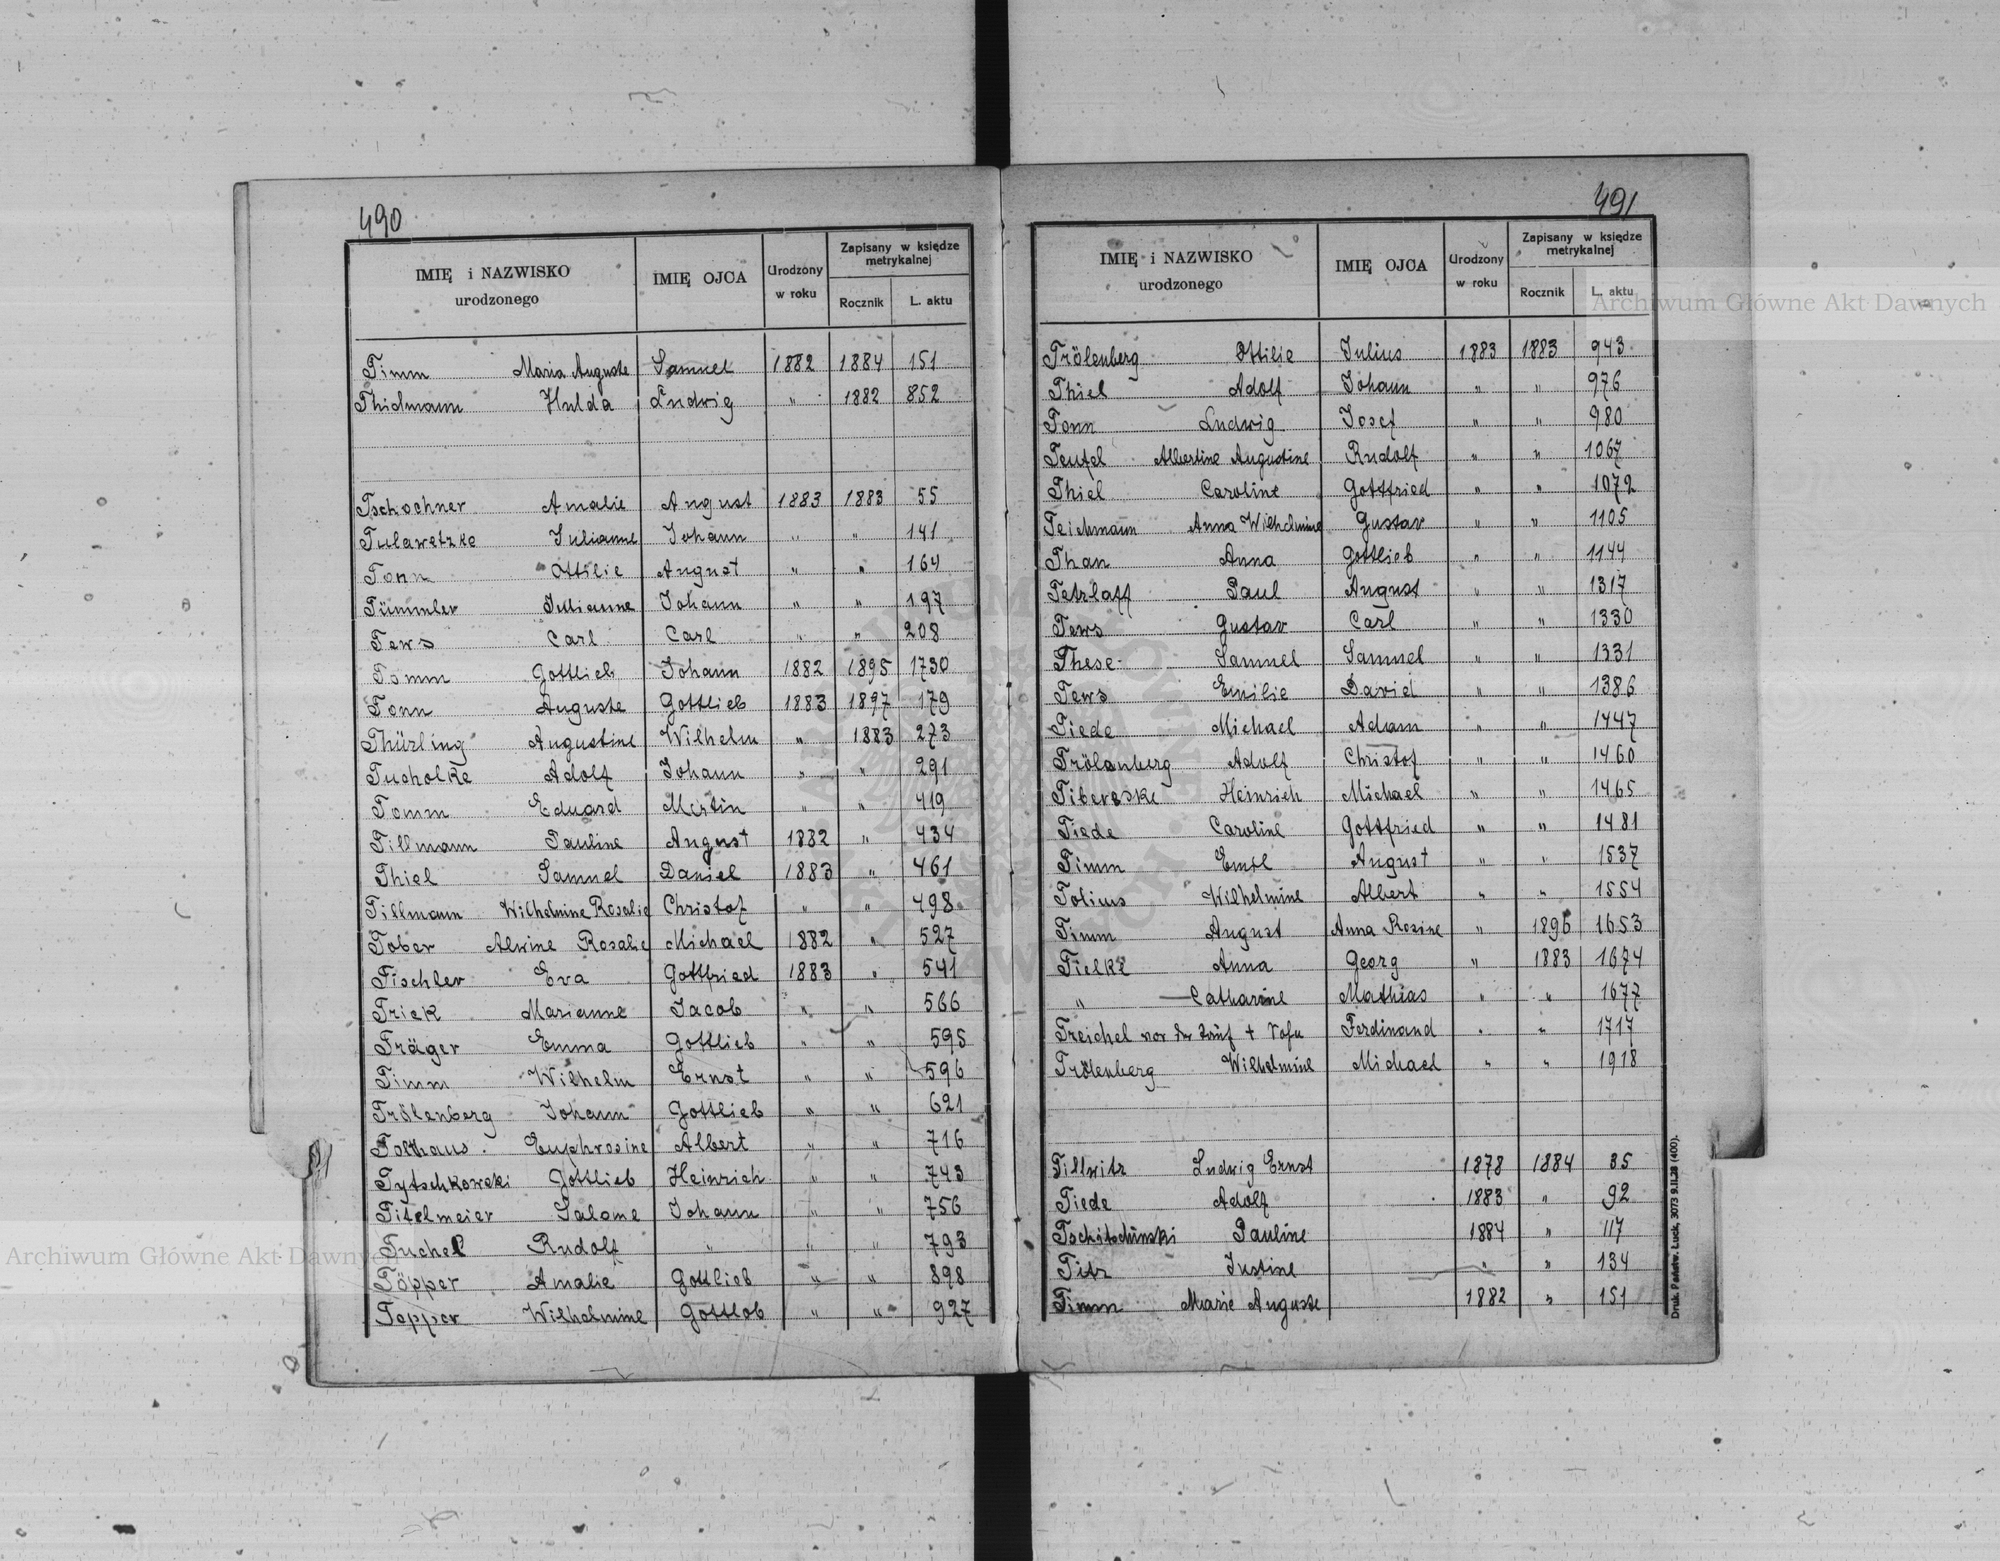 490
IMIĘ i NAZWISKO urodzonego | IMIĘ OJCA | Urodzony w roku | Zapisany w księdze metrykalnej
Rocznik | L. aktu
Timm Maria Auguste | Samuel | 1882 | 1884 | 151
Thidmann Hulda | Ludwig | " | 1882 | 852
Tschochner Amalie | August | 1883 | 1883 | 55
Tulawetzke Julianne | Johann | " | " | 141
Tonn Ottilie | August | " | " | 164
Tümmler Julianne | Johann | " | " | 197
Tews Carl | Carl | " | " | 208
Tomm Gottlieb | Johann | 1882 | 1895 | 1730
Tonn Auguste | Gottlieb | 1883 | 1897 | 179
Thürling Augustine | Wilhelm | " | 1883 | 273
Tucholke Adolf | Johann | " | " | 291
Tomm Eduard | Martin | " | " | 419
Tillmann Pauline | August | 1882 | " | 434
Thiel Samuel | Daniel | 1883 | " | 461
Tillmann Wilhelmine Rosalie | Christof | " | " | 498
Tober Alwine Rosalie | Michael | 1882 | " | 527
Tischler Eva | Gottfried | 1883 | " | 541
Triek Marianne | Jacob | " | " | 566
Träger Emma | Gottlieb | " | " | 595
Timm Wilhelm | Ernst | " | " | 596
Trölenberg Johann | Gottlieb | " | " | 621
Tolthaus Euphrosine | Albert | " | " | 716
Tytschkowski Gottlieb | Heinrich | " | " | 743
Titelmeier Salome | Johann | " | " | 756
Tuchel Rudolf | " | " | " | 793
Töpper Amalie | Gottlieb | " | " | 898
Topper Wilhelmine | Gottlob | " | " | 927
491
IMIĘ i NAZWISKO urodzonego | IMIĘ OJCA | Urodzony w roku | Zapisany w księdze metrykalnej
Rocznik | L. aktu
Trölenberg Ottilie | Julius | 1883 | 1883 | 943
Thiel Adolf | Johann | " | " | 976
Tonn Ludwig | Josef | " | " | 980
Teufel Albertine Augustine | Rudolf | " | " | 1067
Thiel Caroline | Gottfried | " | " | 1072
Teichmann Anna Wilhelmine | Gustav | " | " | 1105
Than Anna | Gottlieb | " | " | 1144
Tetzlaff Paul | August | " | " | 1317
Tews Gustav | Carl | " | " | 1330
These Samuel | Samuel | " | " | 1331
Tews Emilie | David | " | " | 1386
Tiede Michael | Adam | " | " | 1447
Trölenberg Adolf | Christof | " | " | 1460
Tiberske Heinrich | Michael | " | " | 1465
Tiede Caroline | Gottfried | " | " | 1481
Timm Emil | August | " | " | 1537
Tolius Wilhelmine | Albert | " | " | 1554
Timm August | Anna Rosine | " | 1896 | 1653
Tielke Anna | Georg | " | 1883 | 1674
" Catharine | Mathias | " | " | 1677
Treichel vor der Tauf + | Ferdinand | " | " | 1717
Trölenberg Wilhelmine | Michael | " | " | 1918
Tillwitz Ludwig Ernst | 1878 | 1884 | 85
Tiede Adolf | 1883 | " | 92
Tschitschinski Pauline | 1884 | " | 117
Titz Justine | " | " | 134
Timm Marie Auguste | 1882 | " | 151
Druk. Państw. Łuck, 3073 9.II.28 (400).
Archiwum Główne Akt Dawnych
Archiwum Główne Akt Dawnych